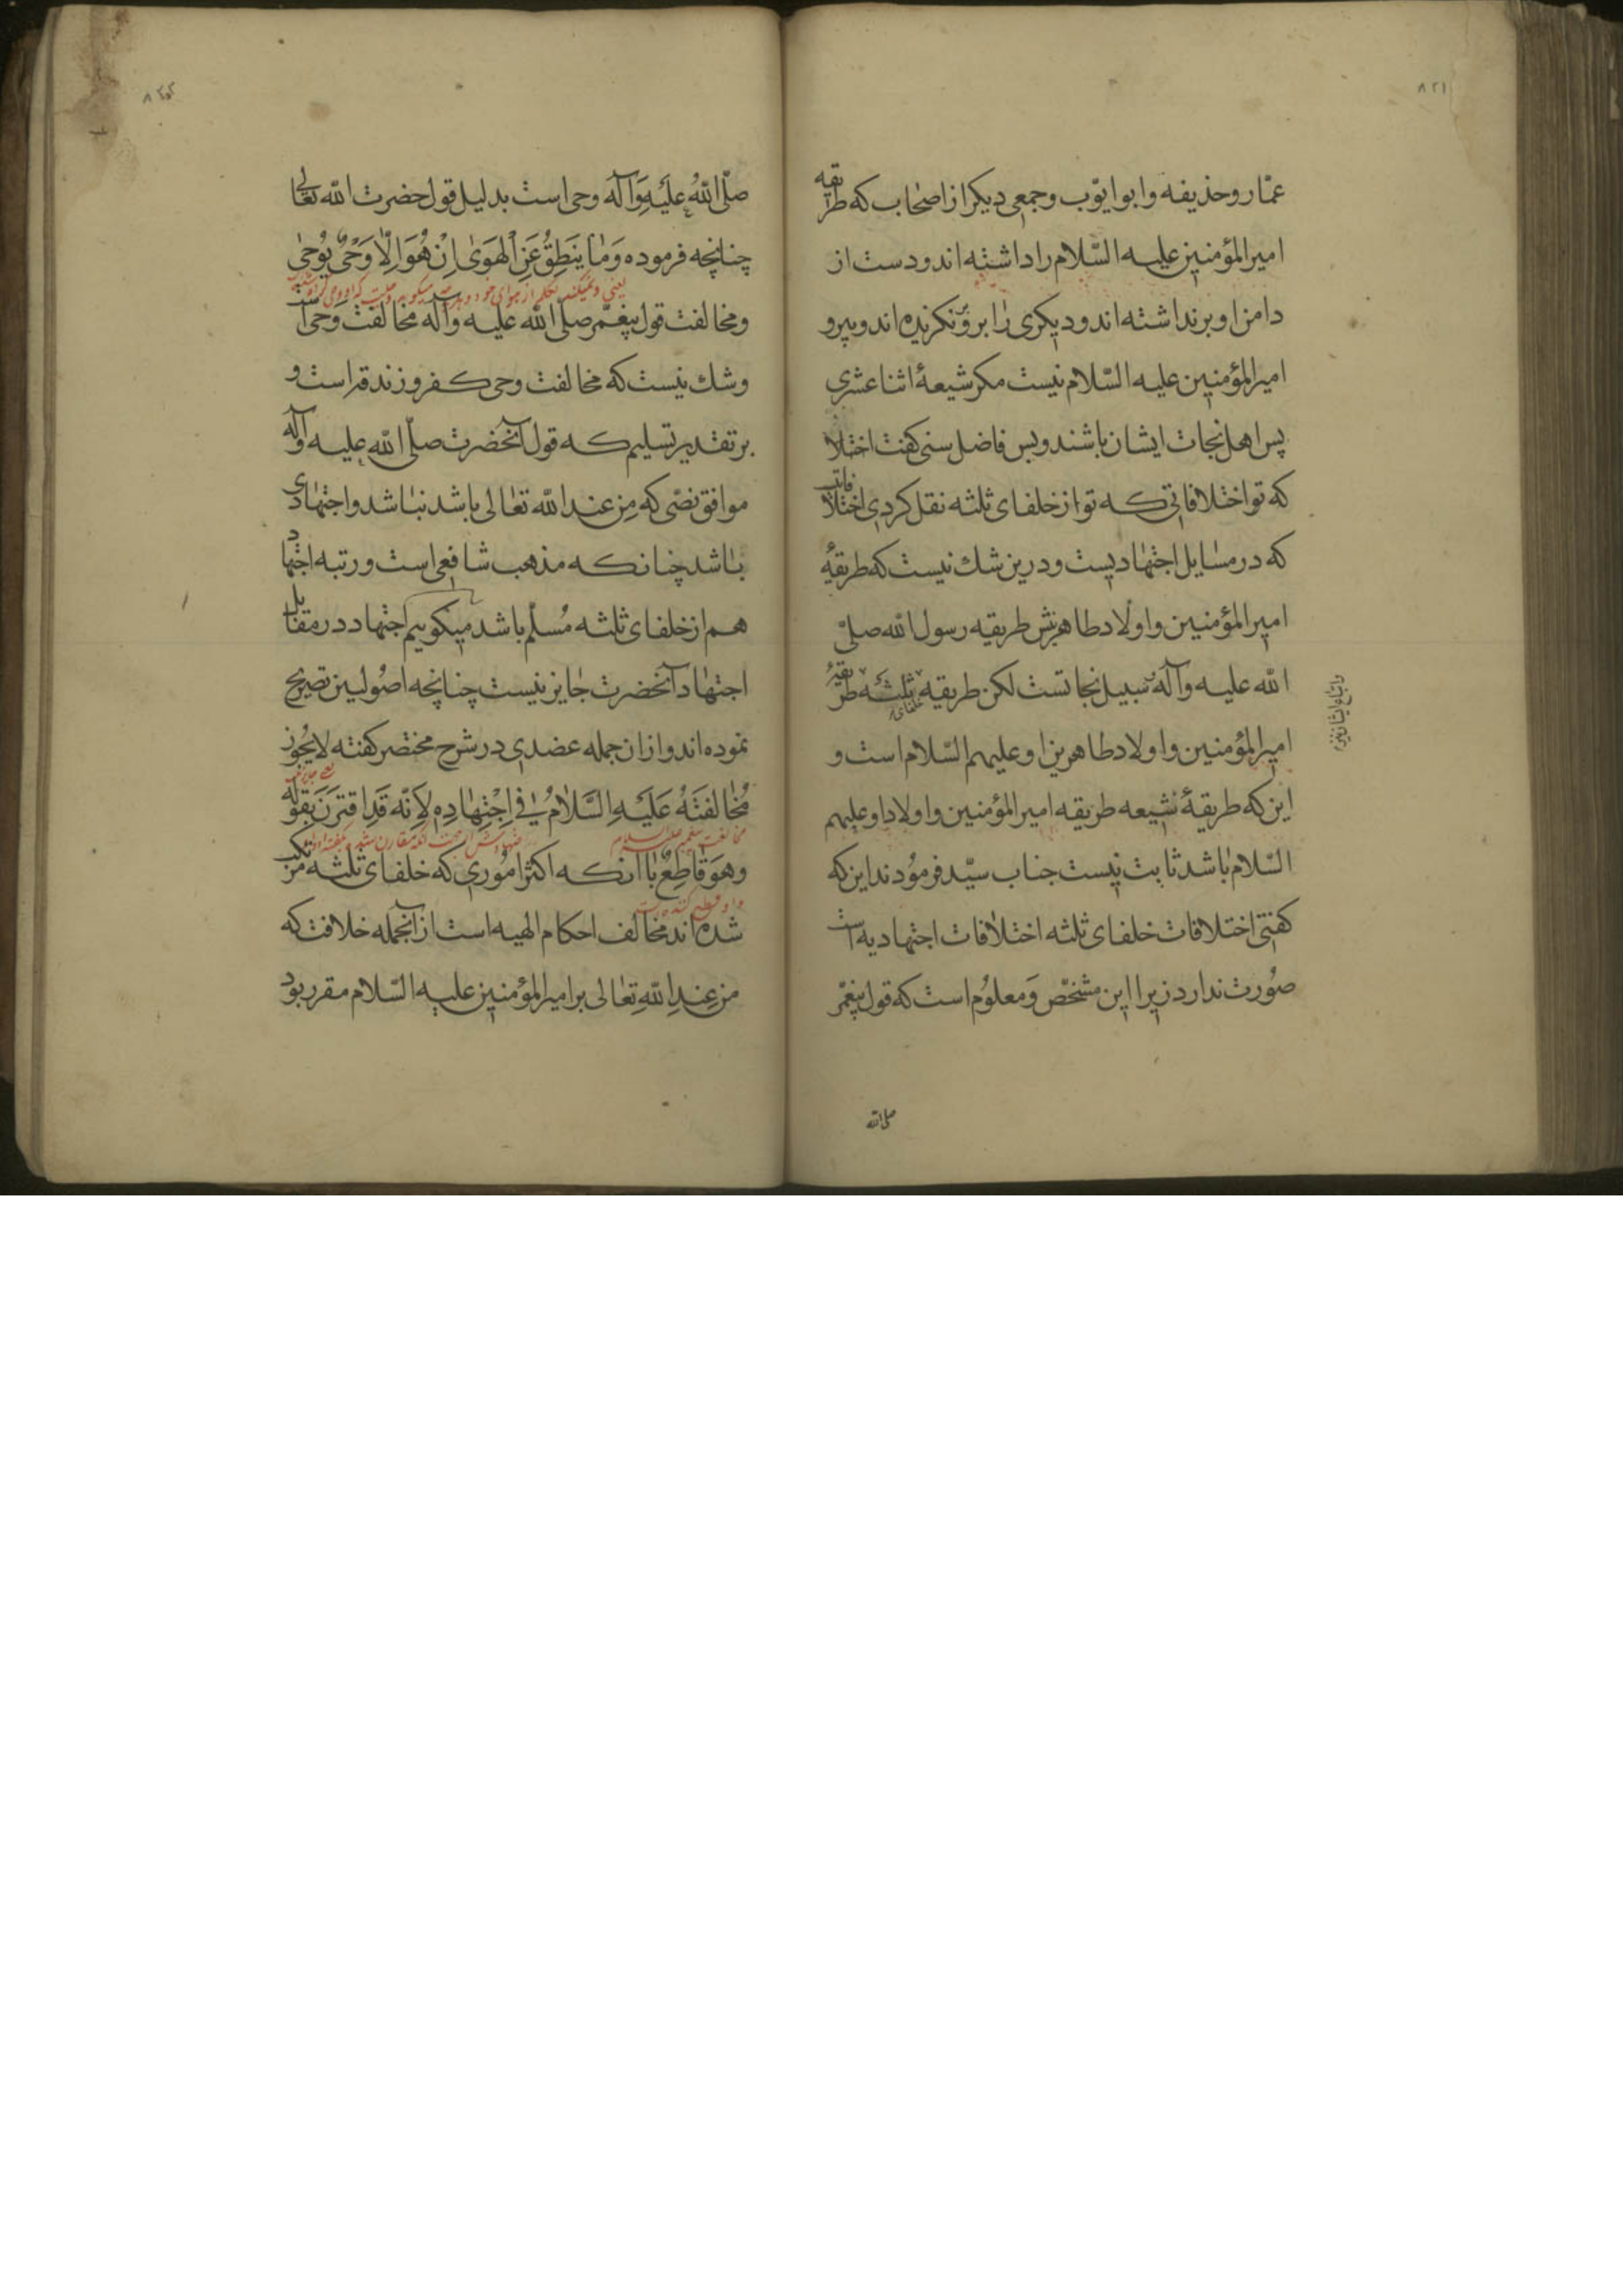 ۸۲۱
عمّار وحذیفه وابوایّوب وجمعی دیکر از اصحاب که طریقه
امیرالمؤمنین علیه السّلام را داشته اند ودست از
دامن او برنداشته اند ودیکری را برو نکزیده اند وپیرو
امیرالمؤمنین علیه السّلام نیست مکر شیعۀ اثنا عشری
پس اهل نجات ایشان باشند وبس فاضل سنی کفت اختلا
که تو اختلافاتی که تو از خلفای ثلثه نقل کردی اختلافاتیست
که در مسایل اجتهادیست ودرین شك نیست که طریقۀ
امیرالمؤمنین واولاد طاهرینش طریقه رسول الله صلیّ
الله علیه وآله سبیل نجاتست لکن طریقه خلفای ثلثه طریقۀ
واتباع ایشان نیز
امیرالمؤمنین واولاد طاهرین او علیهم السّلام است و
این که طریقۀ شیعه طریقه امیرالمؤمنین واولاد او علیهم
السّلام باشد ثابت نیست جناب سیّد فرمودند این که
کفتی اختلافات خلفای ثلثه اختلافات اجتهادیه است
صورت ندارد زیرا این مشخّص ومعلوم است که قول پیغمّر
صلی الله
۸۲۲
صلّی اللهُ علَیهِ وَآله وحی است بدلیل قول حضرت الله تعالی
چنانچه فرموده وَمٰا یَنطِقُ عَنِ اْلهَوٰی اِنْ هُوَ اِلّا وَحْیٌ یُوحٰی
یعنی ونمیکند تکلم از هوای خود
ومخالفت قول پیغمّر صلّی الله علیه وآله مخالفت وَحی است
وشك نیست که مخالفت وحی کفر وزندقه است و
بر تقدیر تسلیم که قول آنحضرت صلّی الله علیه وآله
موافق نصّی که مِن عند الله تعالی باشد نباشد واجتهادی
باشد چنانکه مذهب شافعی است ورتبه اجتهاد
هم از خلفای ثلثه مُسلّم باشد میکوییم اجتهاد در مقابل
اجتهاد آنحضرت جایز نیست چنانچه اصُولیین تصریح
نموده اند واز ان جمله عضدی در شرح مختصر کفته لایجُوز
یعنی جایز نیست
مُخٰالفَتهُ عَلَیهِ السَّلامُ فی اِجْتِهادِهِ لِاَنّه قَدِ اقتَرَنَ بقَوله
مخالفت پیغمبر علیه السلام
وهوَ قاطِعٌ با انکه اکثر اموری که خلفای ثلثه مرتکب
شده اند مخالف احکام الهیه است از انجمله خلافت که
من عِندِ اللهِ تعالی بر امیرالمؤمنین علیه السّلام مقرر بود